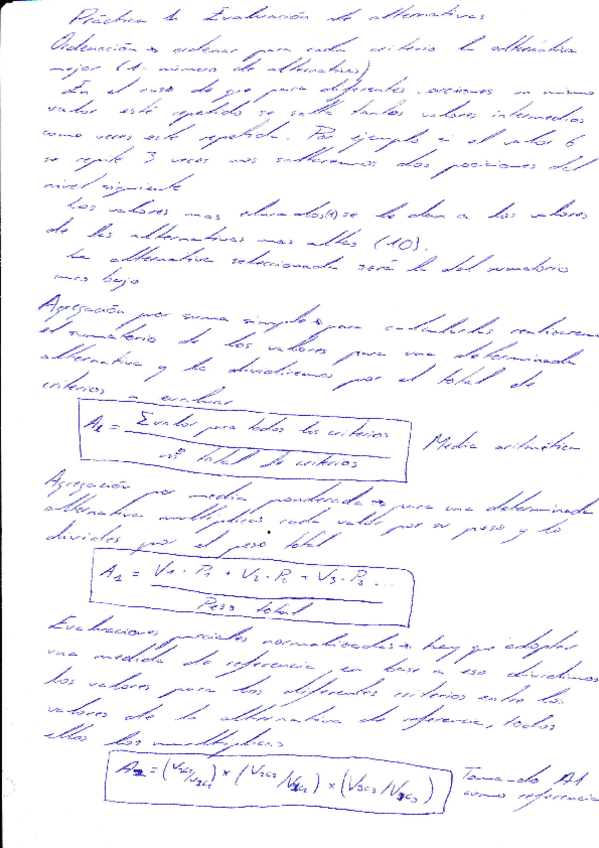 Práctica 1. Evaluación de alternativas
Ordenación → ordenar para cada criterio la alternativa
mejor (1- número de alternativas)
En el caso de que para diferentes opciones un mismo
valor esté repetido se salta tantos valores intermedios
como veces esté repetido. Por ejemplo si el valor 6
se repite 3 veces nos saltaremos dos posiciones del
nivel siguiente
Los valores mas elevados (1) se le dan a los valores
de las alternativas mas altas (10).
La alternativa seleccionada será la del sumatorio
mas bajo
Agregación por suma simple → para calcularlas realizaremos
el sumatorio de los valores para una determinada
alternativa y lo dividiremos por el total de
criterios a evaluar
A1 = Σ valor para todos los criterios
nº total de criterios
Media aritmética
Agregación por media ponderada → para una determinada
alternativa multiplicas cada valor por su peso y lo
divides por el peso total
A1 = V1 · P1 + V2 · P2 + V3 · P3 ...
Peso total
Evaluaciones parciales normalizadas → hay que adoptar
una medida de referencia, en base a eso dividimos
los valores para los diferentes criterios entre los
valores de la alternativa de referencia, todos
ellos los multiplicas
Tomando A1
como referencia